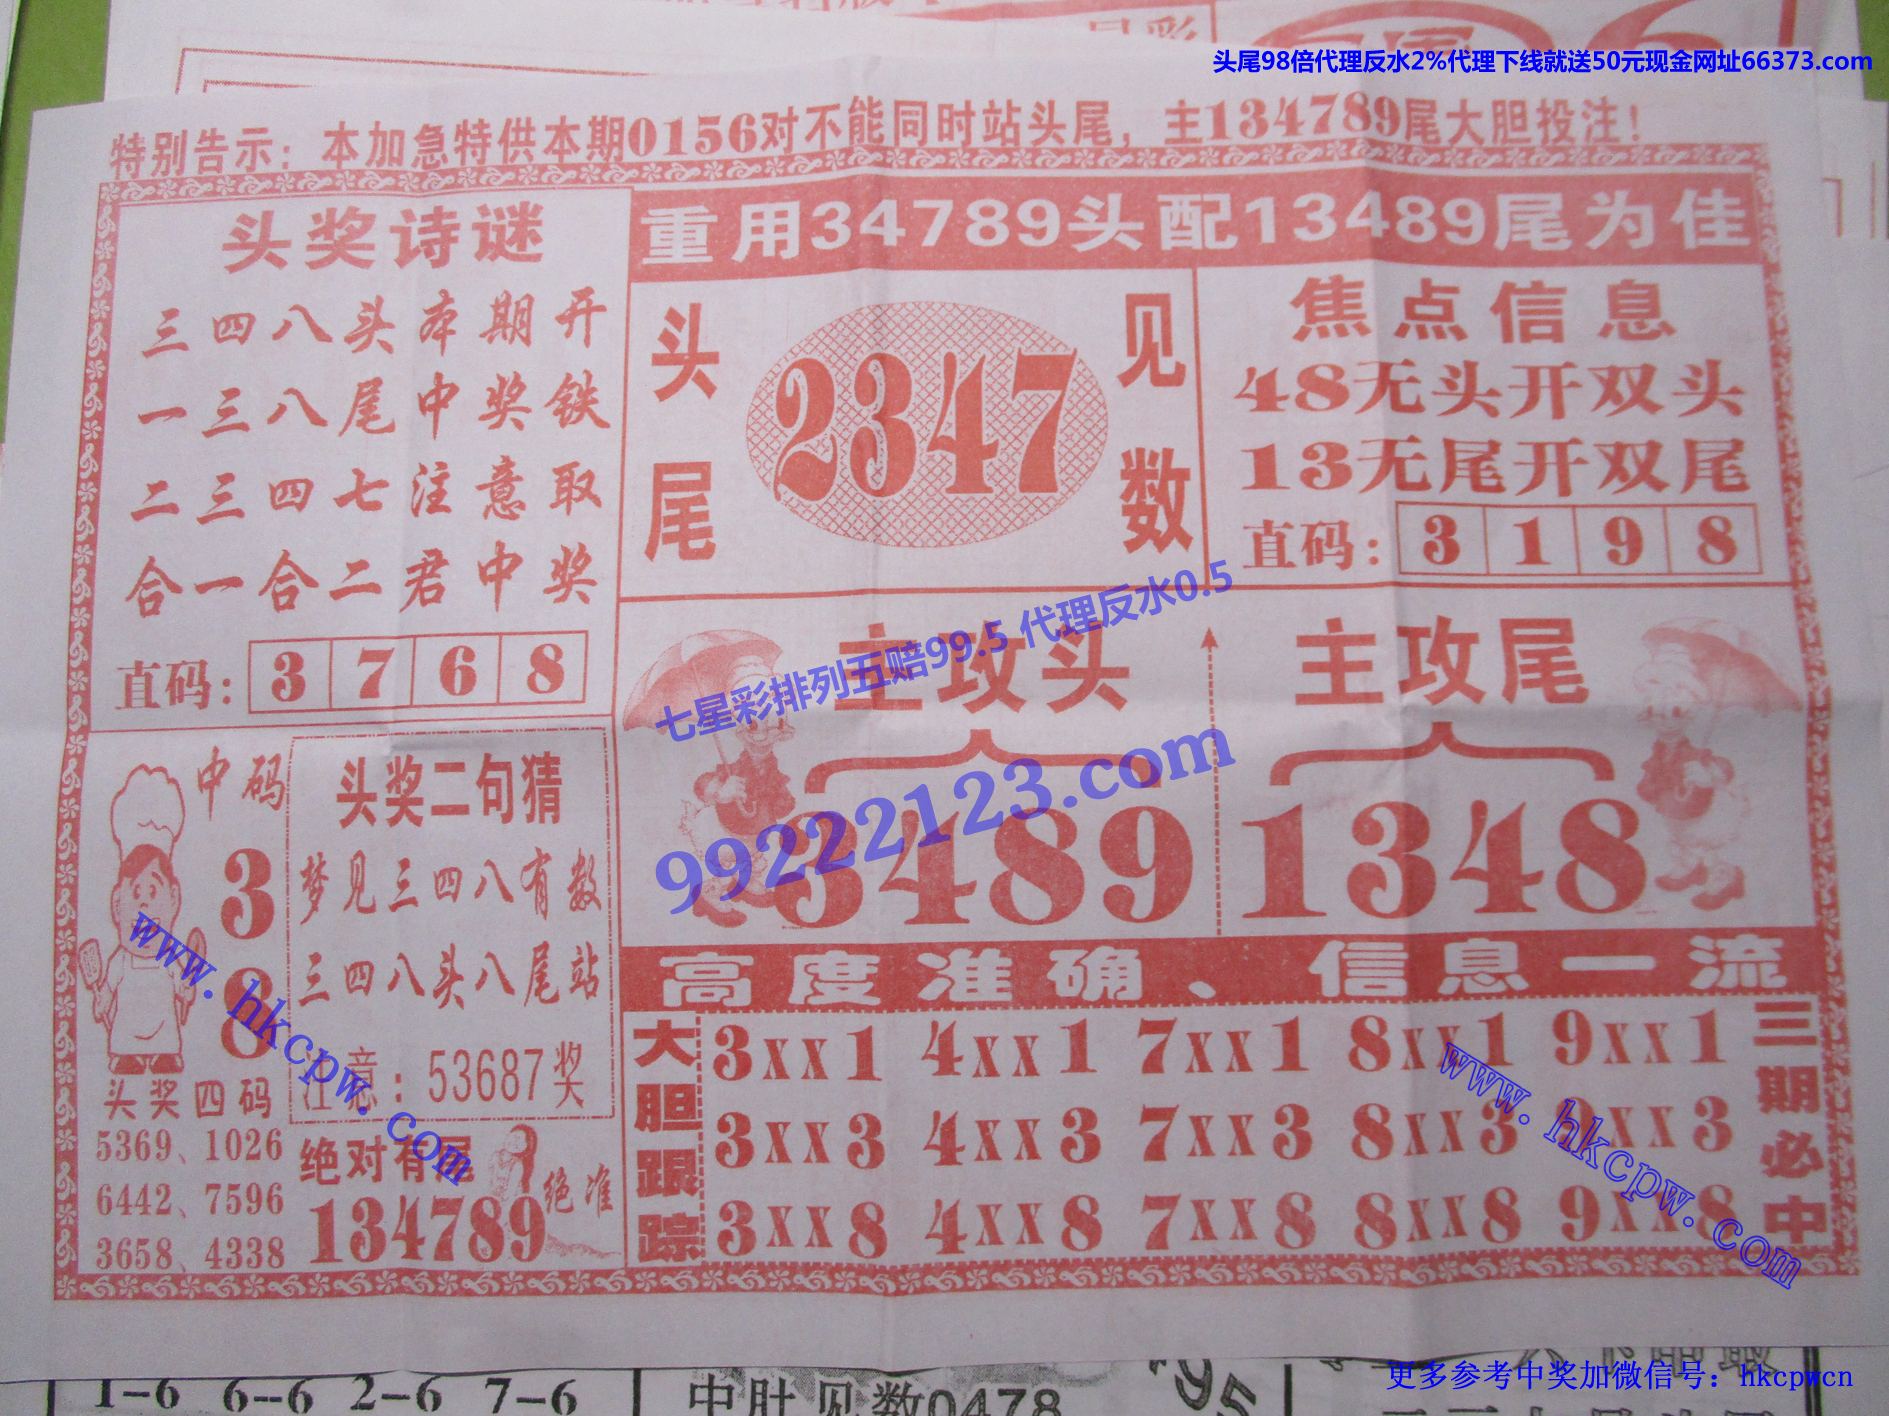 头尾98倍代理反水2%代理下线就送50元现金网址66373.com
特别告示：本加急特供本期0156对不能同时站头尾，主134789尾大胆投注！
头奖诗谜
三四八头本期开
一三八尾中奖铁
二三四七注意取
合一合二君中奖
直码：3768
重用34789头配13489尾为佳
头尾
2347
见数
焦点信息
48无头开双头
13无尾开双尾
直码：3198
七星彩排列五赔99.5 代理反水0.5
99222123.com
主攻头
3489
主攻尾
1348
中码
3
8
头奖四码
5369、1026
6442、7596
3658、4338
头奖二句猜
梦见三四八有数
三四八头八尾站
注意：53687奖
绝对有尾
绝准
134789
高度准确、信息一流
大胆跟踪
3xx1 4xx1 7xx1 8xx1 9xx1
3xx3 4xx3 7xx3 8xx3 9xx3
3xx8 4xx8 7xx8 8xx8 9xx8
三期必中
www.hkcpw.com
www.hkcpw.com
1-6 6--6 2-6 7-6
中肚见数0478
更多参考中奖加微信号：hkcpwcn